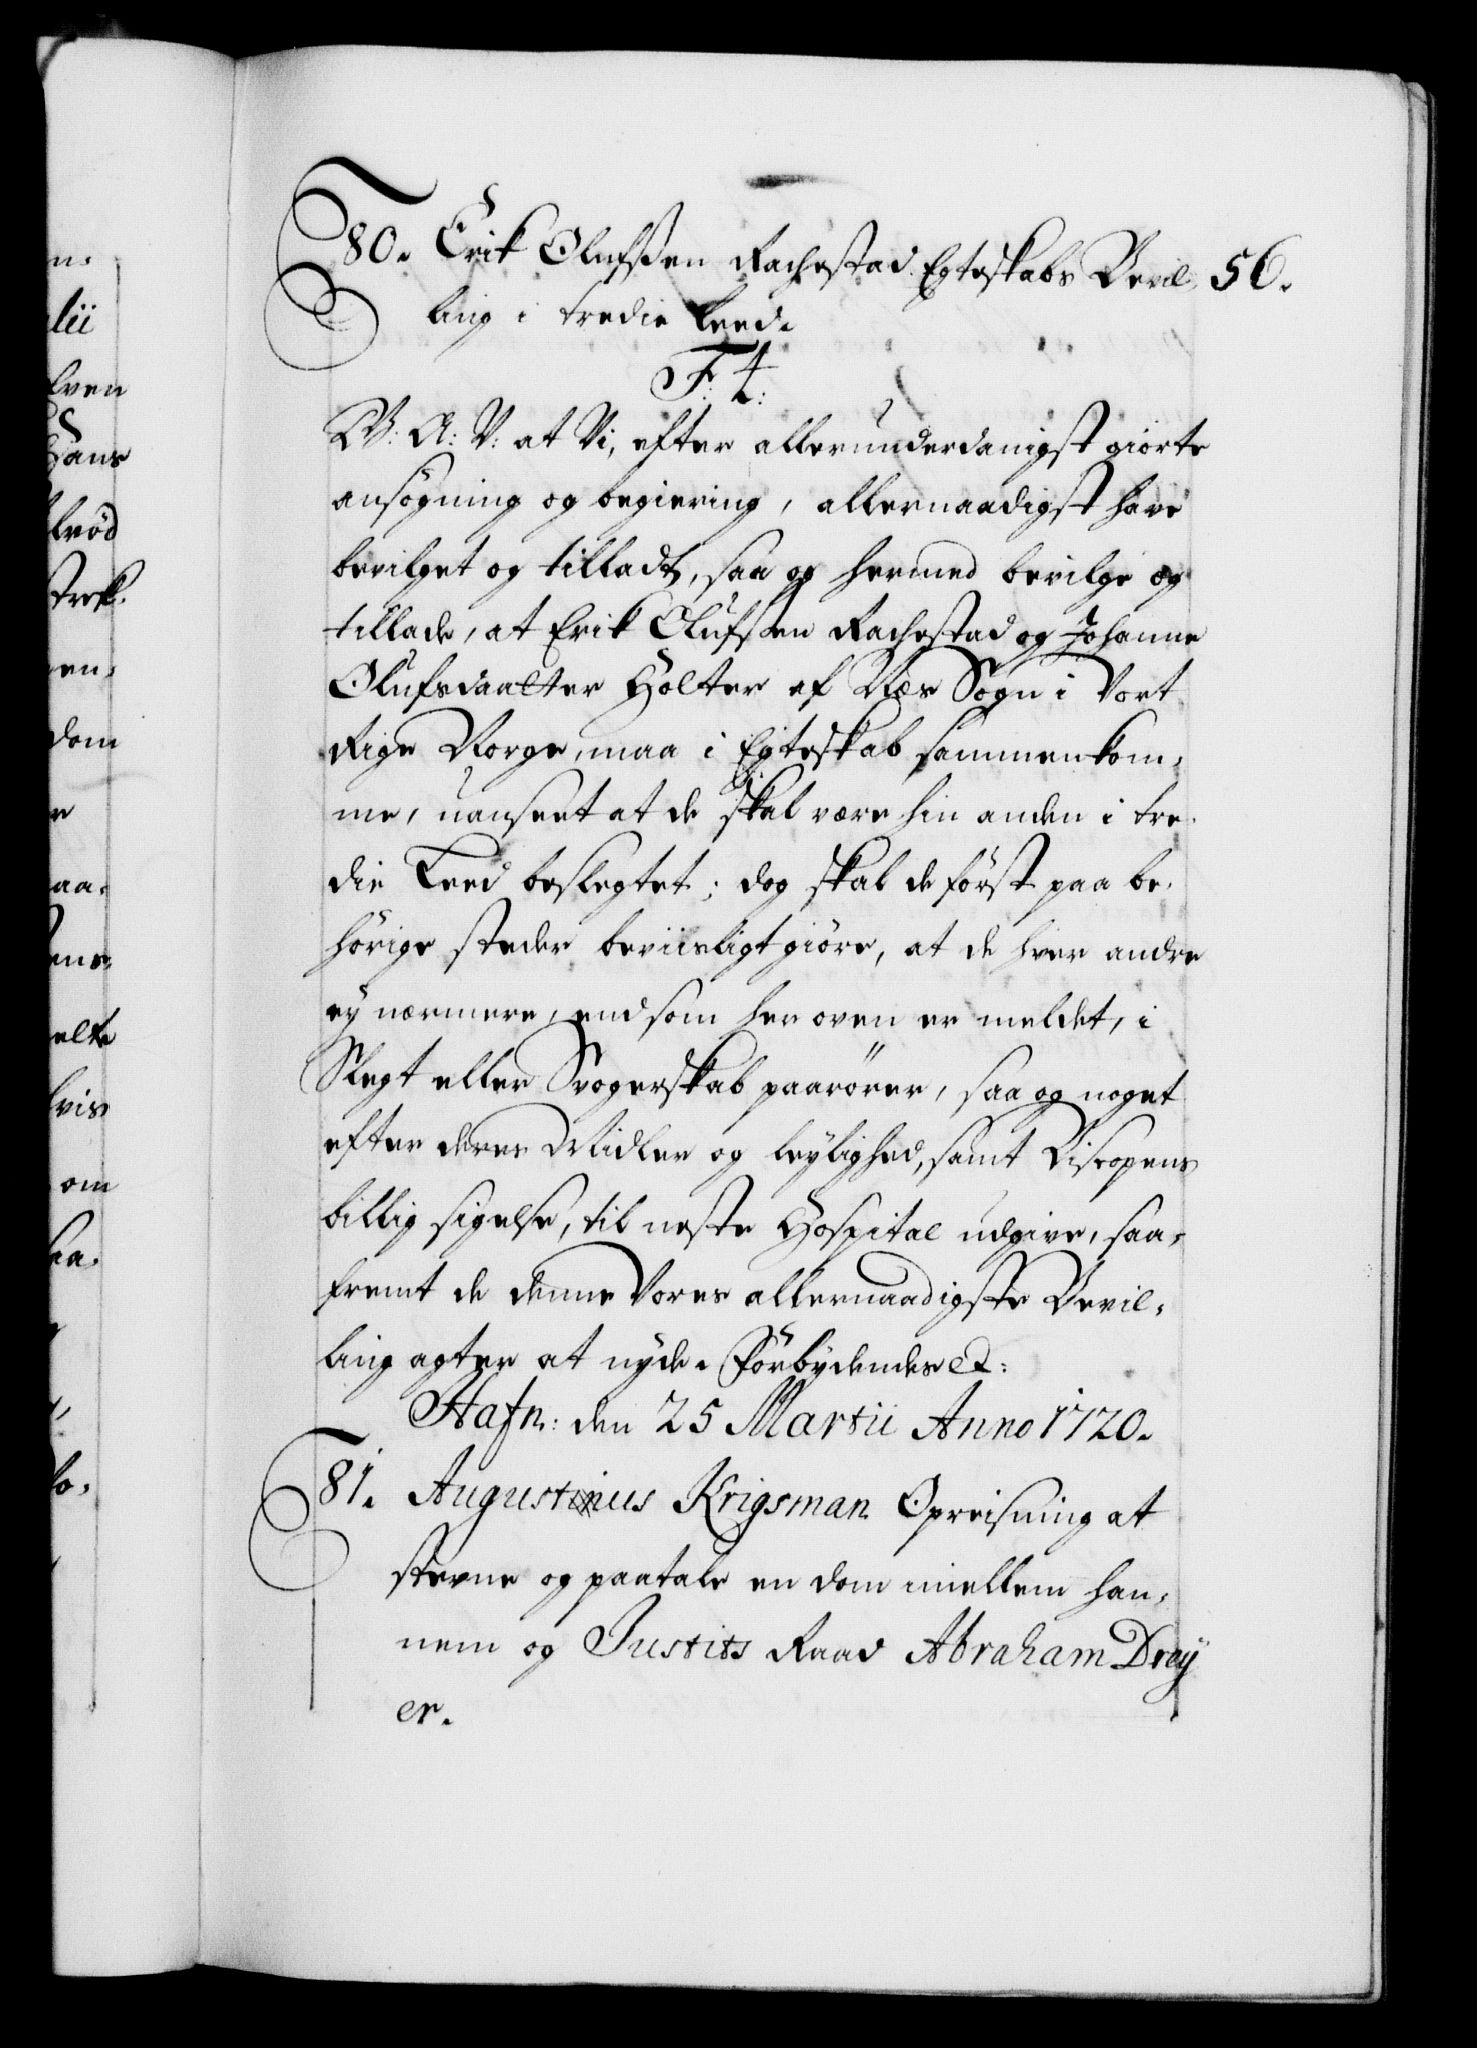 56.
80. Erik Olufsen Rachestad Egteskabs Bevil-
ling i tredie Leed.
F: 4:
W: A: V: at Vi, efter allerunderdanigst giorte
ansögning og begiering, allernaadigst have
bevilget og tilladt, saa og hermed bevilge og
tillade, at Erik Olufsen Rachestad og Johanne
Olufsdaatter Holter af Næs Sogn i Vort
Rige Norge, maa i Egteskab sammenkom-
me, uanseet at de skal være hin anden i tre-
die Leed beslegtet; dog skal de först paa be-
hörige steder beviisligt giöre, at de hver andre
ey nærmere, end som her oven er meldet, i
Slegt eller Svogerskab paarörer, saa og noget
efter deres Midler og leylighed, samt Biscopens
billig sigelse, til neste Hospital udgive, saa-
fremt de denne Vores allernaadigste Bevil-
ling agter at nyde. Forbydendes et:
Hafn: den 25 Martii Anno 1720.
81. Augustinus Krigsman Opreisning at
stevne og paatale en dom imellem han-
nem og Justits Raad Abraham Drey
er.
n.
lii
lven
Hans
lröd
strek.
en.
dom
e
aa.
ens.
elte
hvis
om
aa.
lo.